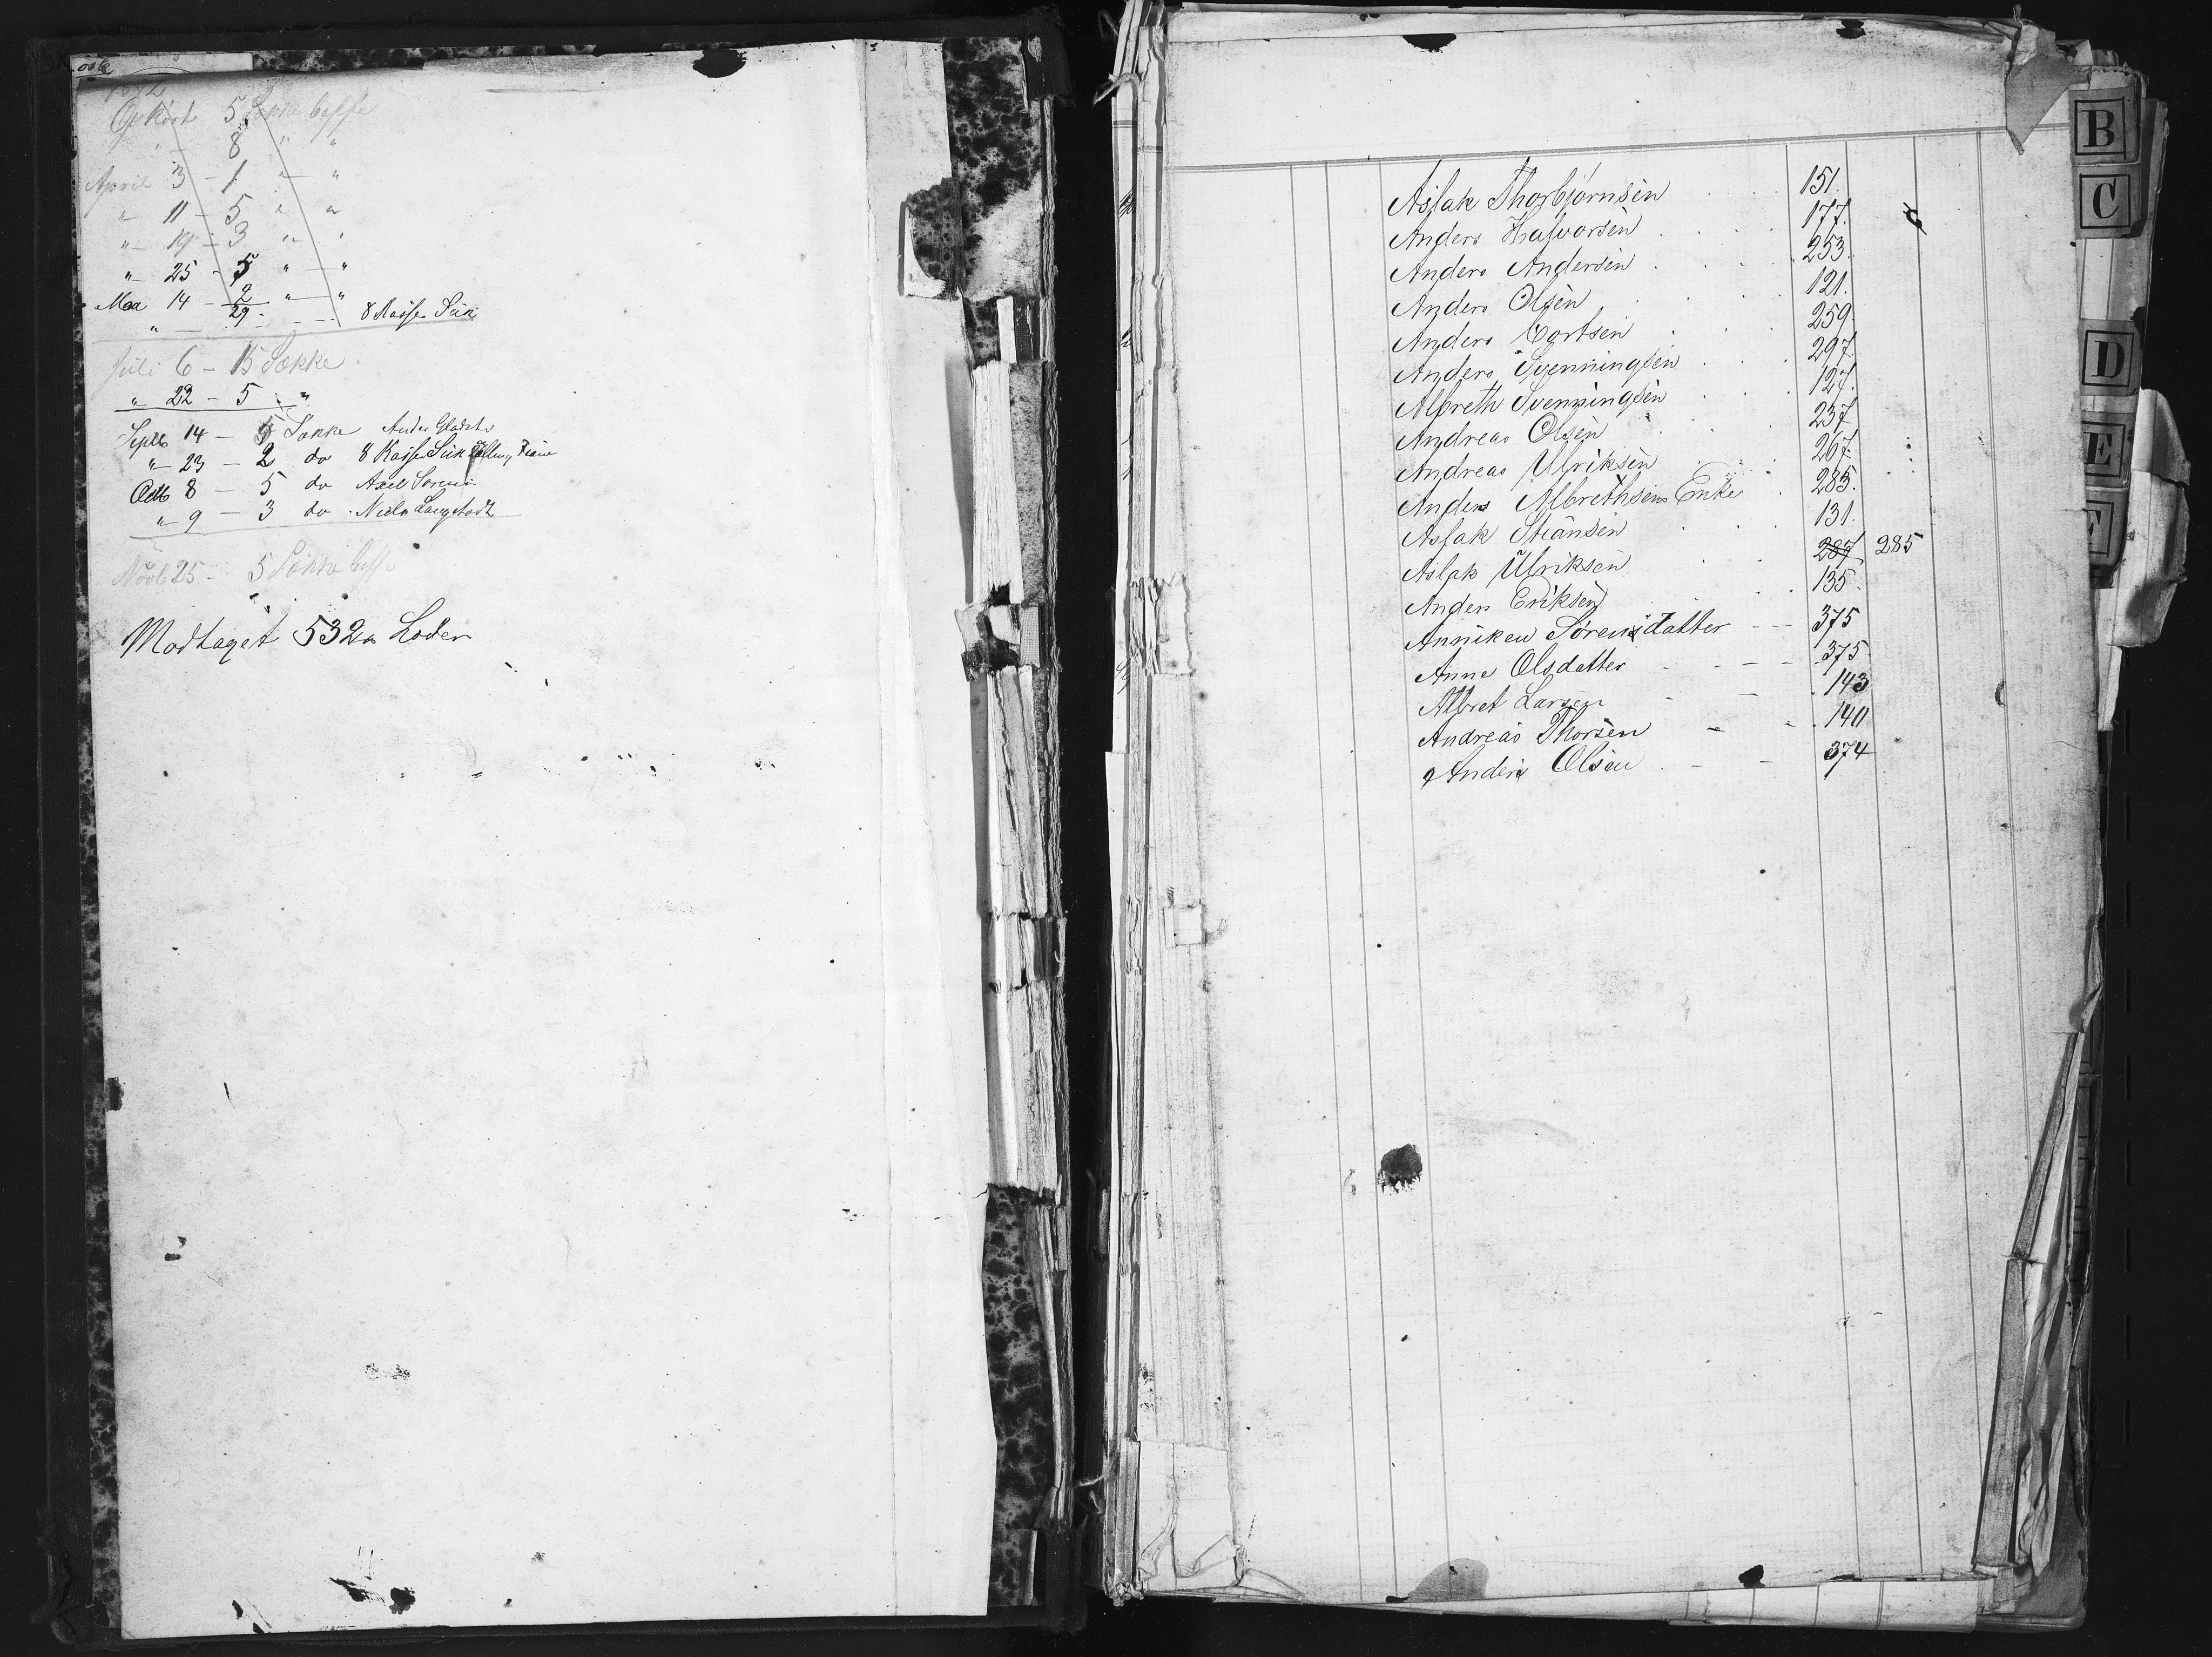 1872
Opkört 5 Sække Caffe
" - 8 " "
April 3 - 1 " - "
" 11 - 5 " "
" - 19 - 3 " "
" 25 - 5 " - "
Mai 14 - 2 " - "
" - 29 - 8 Kasser Sik
Juli 6 - 15 Sække
" 22 - 5 - "
Septb 14 - 5 Sække Anders
" - 23 - 2 do 8 Kasser Sik
Octb 8 - 5 do Axel Sörens
" 9 - 3 do Niels Langstodt
Novb 25 - 5 Sække Caffe
Modtaget 532 Loder
Aslak Thorbjörnsen 151.
Anders Halvorsen 177.
Anders Andersen 253.
Anders Olsen 121.
Anders Cortsen 259.
Anders Svenningsen 297.
Albreth Svenningsen 127.
Andreas Olsen 237.
Andreas Ulriksen 267.
Anders Albrethsens Enke 283.
Aslak Stiansen 131.
Aslak Ulriksen 287 285
Anders Eriksen 135.
Anniken Sörensdatter - - 375
Anne Olsdatter - - - 375
Albret Larsen - - 143
Andreas Thorsen - - 140
Anders Olsen - - 374
B
C
D
E
F